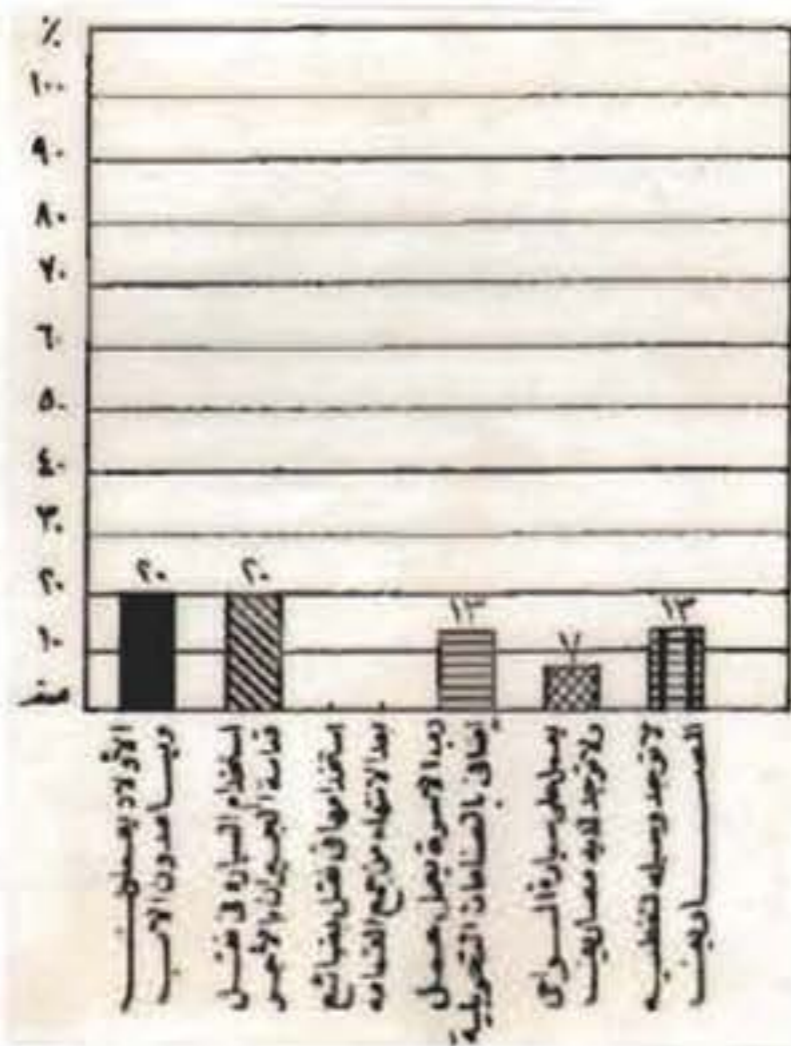 ٪
١٠٠
٩٠
٨٠
٧٠
٦٠
٥٠
٤٠
٣٠
٢٠
١٠
صفر
٢٠
٢٠
١٣
٧
١٣
الأولاد يعملون
ويساعدون الأب
استخدام السيارة فى نقل
قمامة الجيران بالأجر
إستخدامها فى نقل بضائع
بعد الانتهاء من جمع القمامة
رب الاسرة يعمل عمل
إضافى بالصناعات التحويلية
يعمل على سيارة
ولا توجد لديه مصاريف
لا توجد وسيله لتغطيه
المصاريف